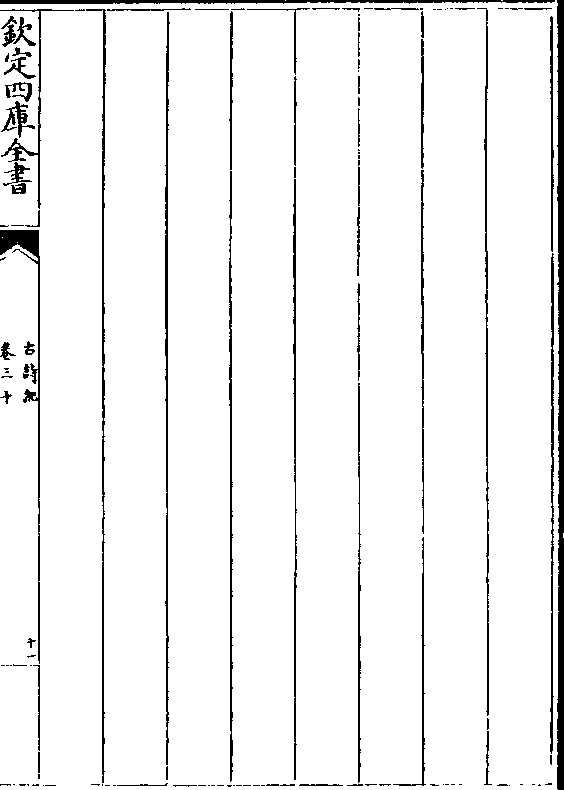 欽定四庫全書
古詩紀
卷三十
十一